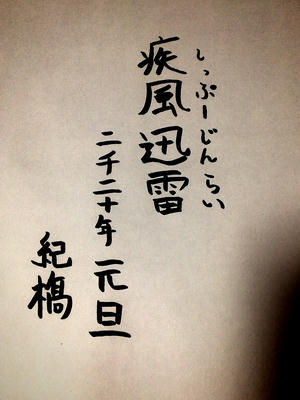 しっぷーじんらい
疾風迅雷
二千二十年 元旦
紀橋